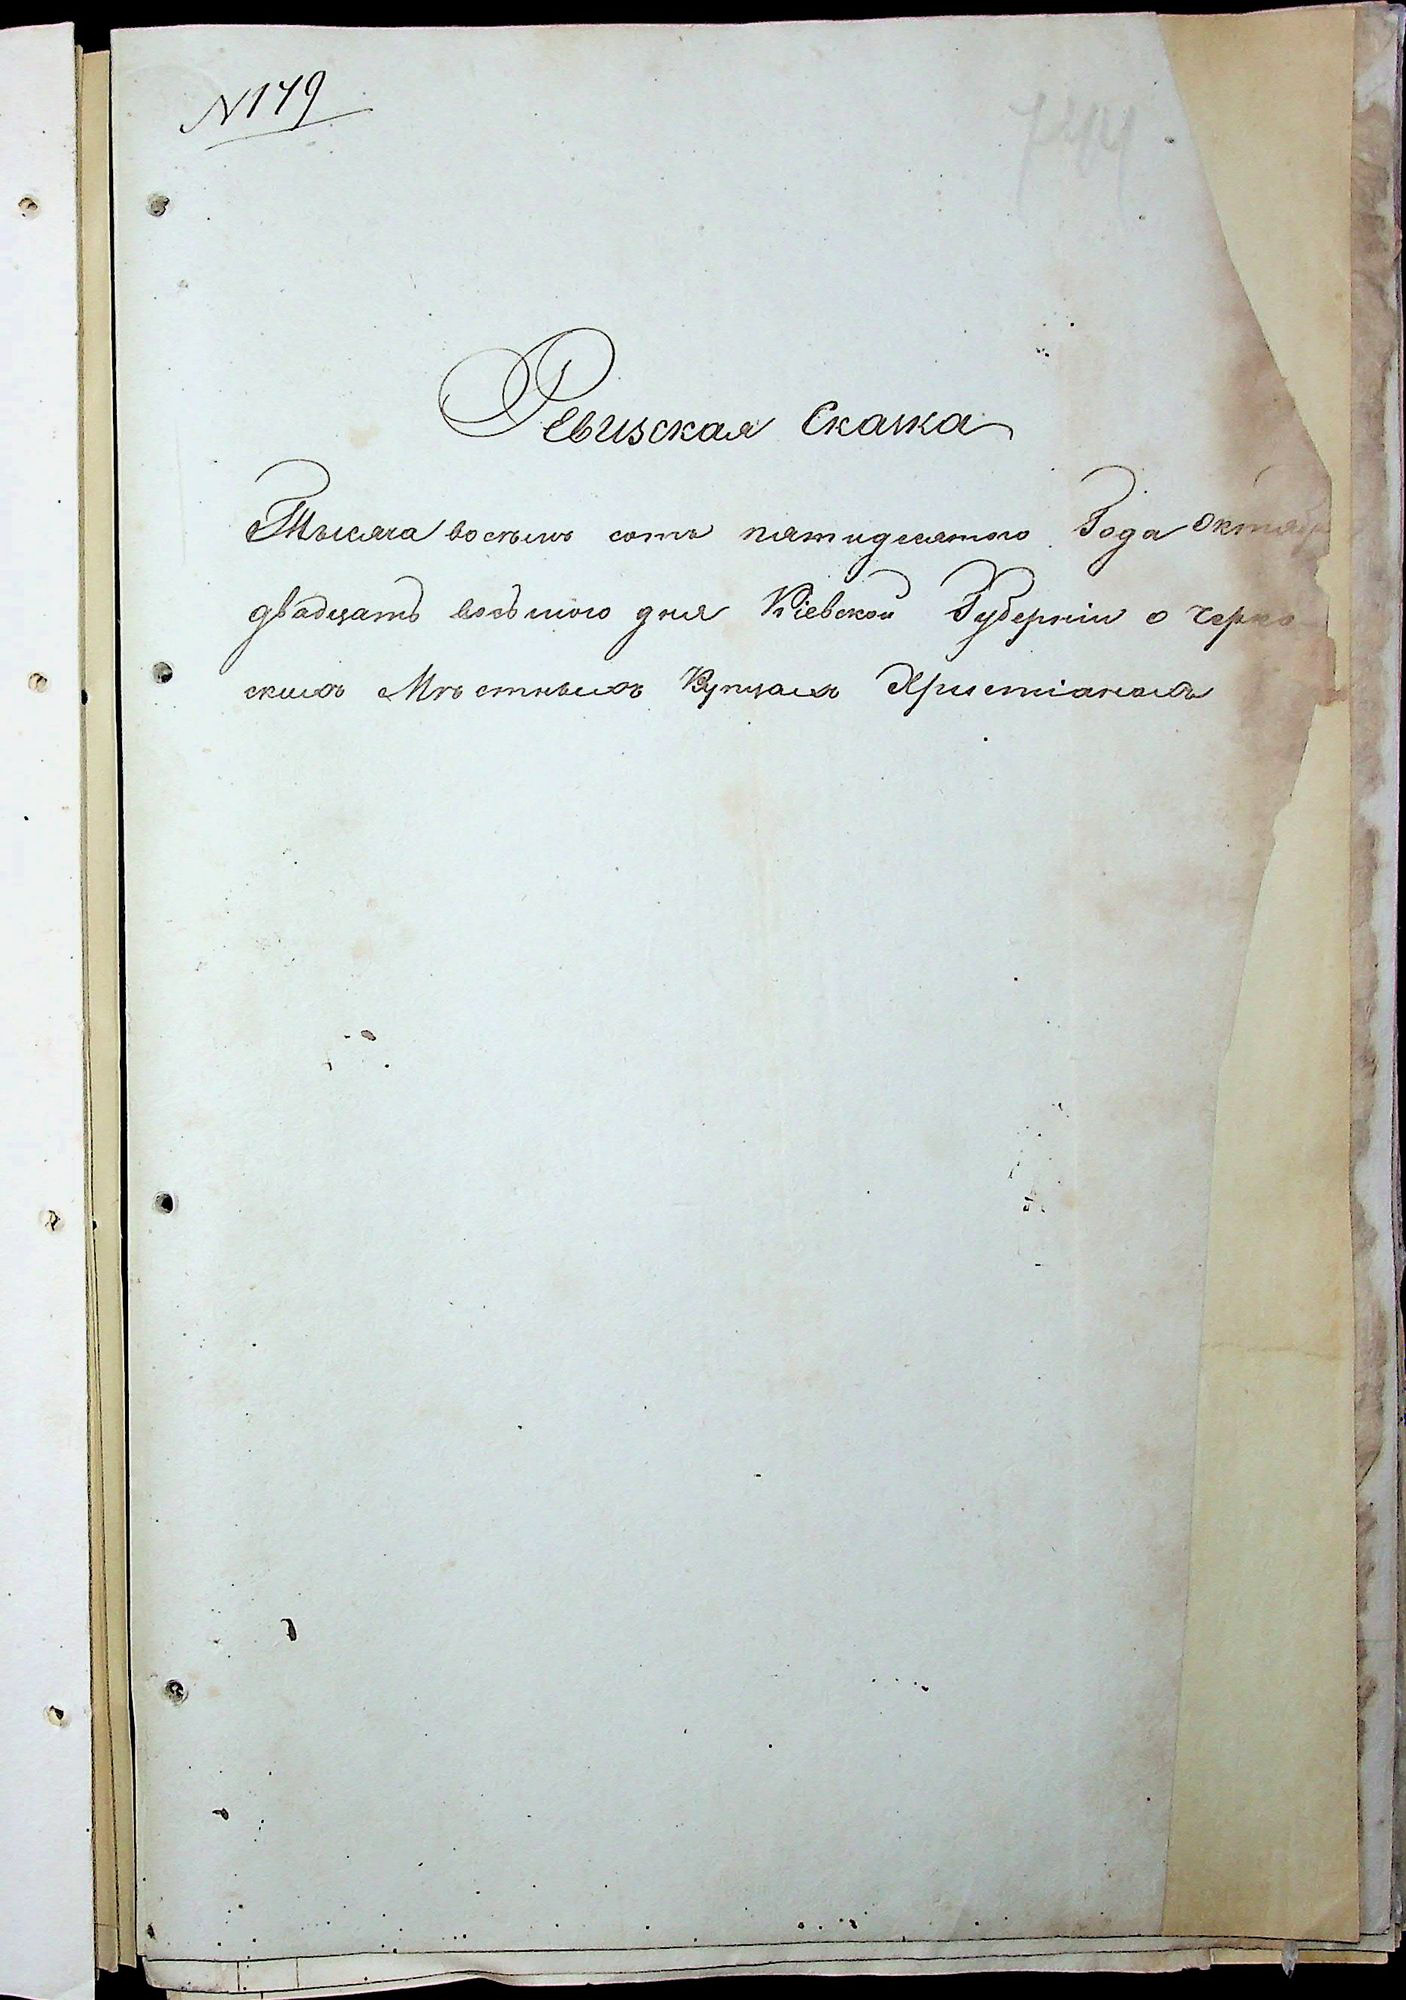 N 179
744
Ревизская Сказка
Тысяча восемь сотъ пятидесятого Года Октябр
двадцать восьмого дня Кіевской Губерніи о Черка-
скихъ Мѣстныхъ Купцахъ Христіанахъ